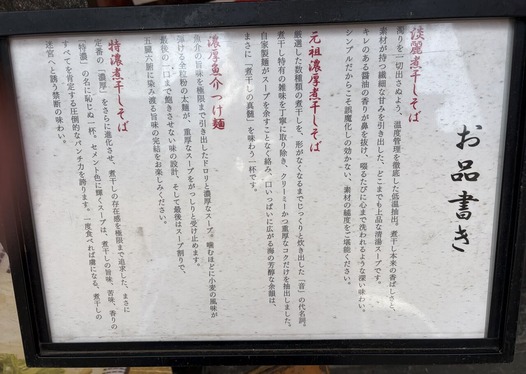 お品書き
淡麗煮干しそば
濁りを一切出さぬよう、温度管理を徹底した低温抽出。煮干し本来の香ばしさと、
素材が持つ繊細な甘みを引き出した、どこまでも上品な清湯スープです。
キレのある醤油の香りが鼻を抜け、啜るたびに心まで洗われるような深い味わい。
シンプルだからこそ誤魔化しの効かない、素材の極度をご堪能ください。
元祖濃厚煮干しそば
厳選した数種類の煮干しを、形がなくなるまでじっくりと炊き出した「音」の代名詞。
煮干し特有の雑味を丁寧に取り除き、クリーミーかつ重厚なコクだけを抽出しました。
自家製麺がスープを余すことなく絡み、口いっぱいに広がる海の芳醇な余韻は、
まさに「煮干しの真髄」を味わう一杯です。
濃厚魚介つけ麺
魚介の旨味を極限まで引き出したドロリと濃厚なスープ。噛むほどに小麦の風味が
弾ける全粒粉の太麺が、重厚なスープをがっしりと受け止めます。
最後の一口まで飽きさせない味の設計、そして最後はスープ割りで、
五臓六腑に染み渡る旨味の完結をお楽しみください。
特濃煮干しそば
定番の「濃厚」をさらに進化させ、煮干しの存在感を極限まで追求した、まさに
「特濃」の名に恥じぬ一杯。セメント色に輝くスープは、煮干しの旨味、苦味、香りの
すべてを肯定する圧倒的なパンチ力を誇ります。一度食べれば虜になる、煮干しの
迷宮へと誘う禁断の味わい。